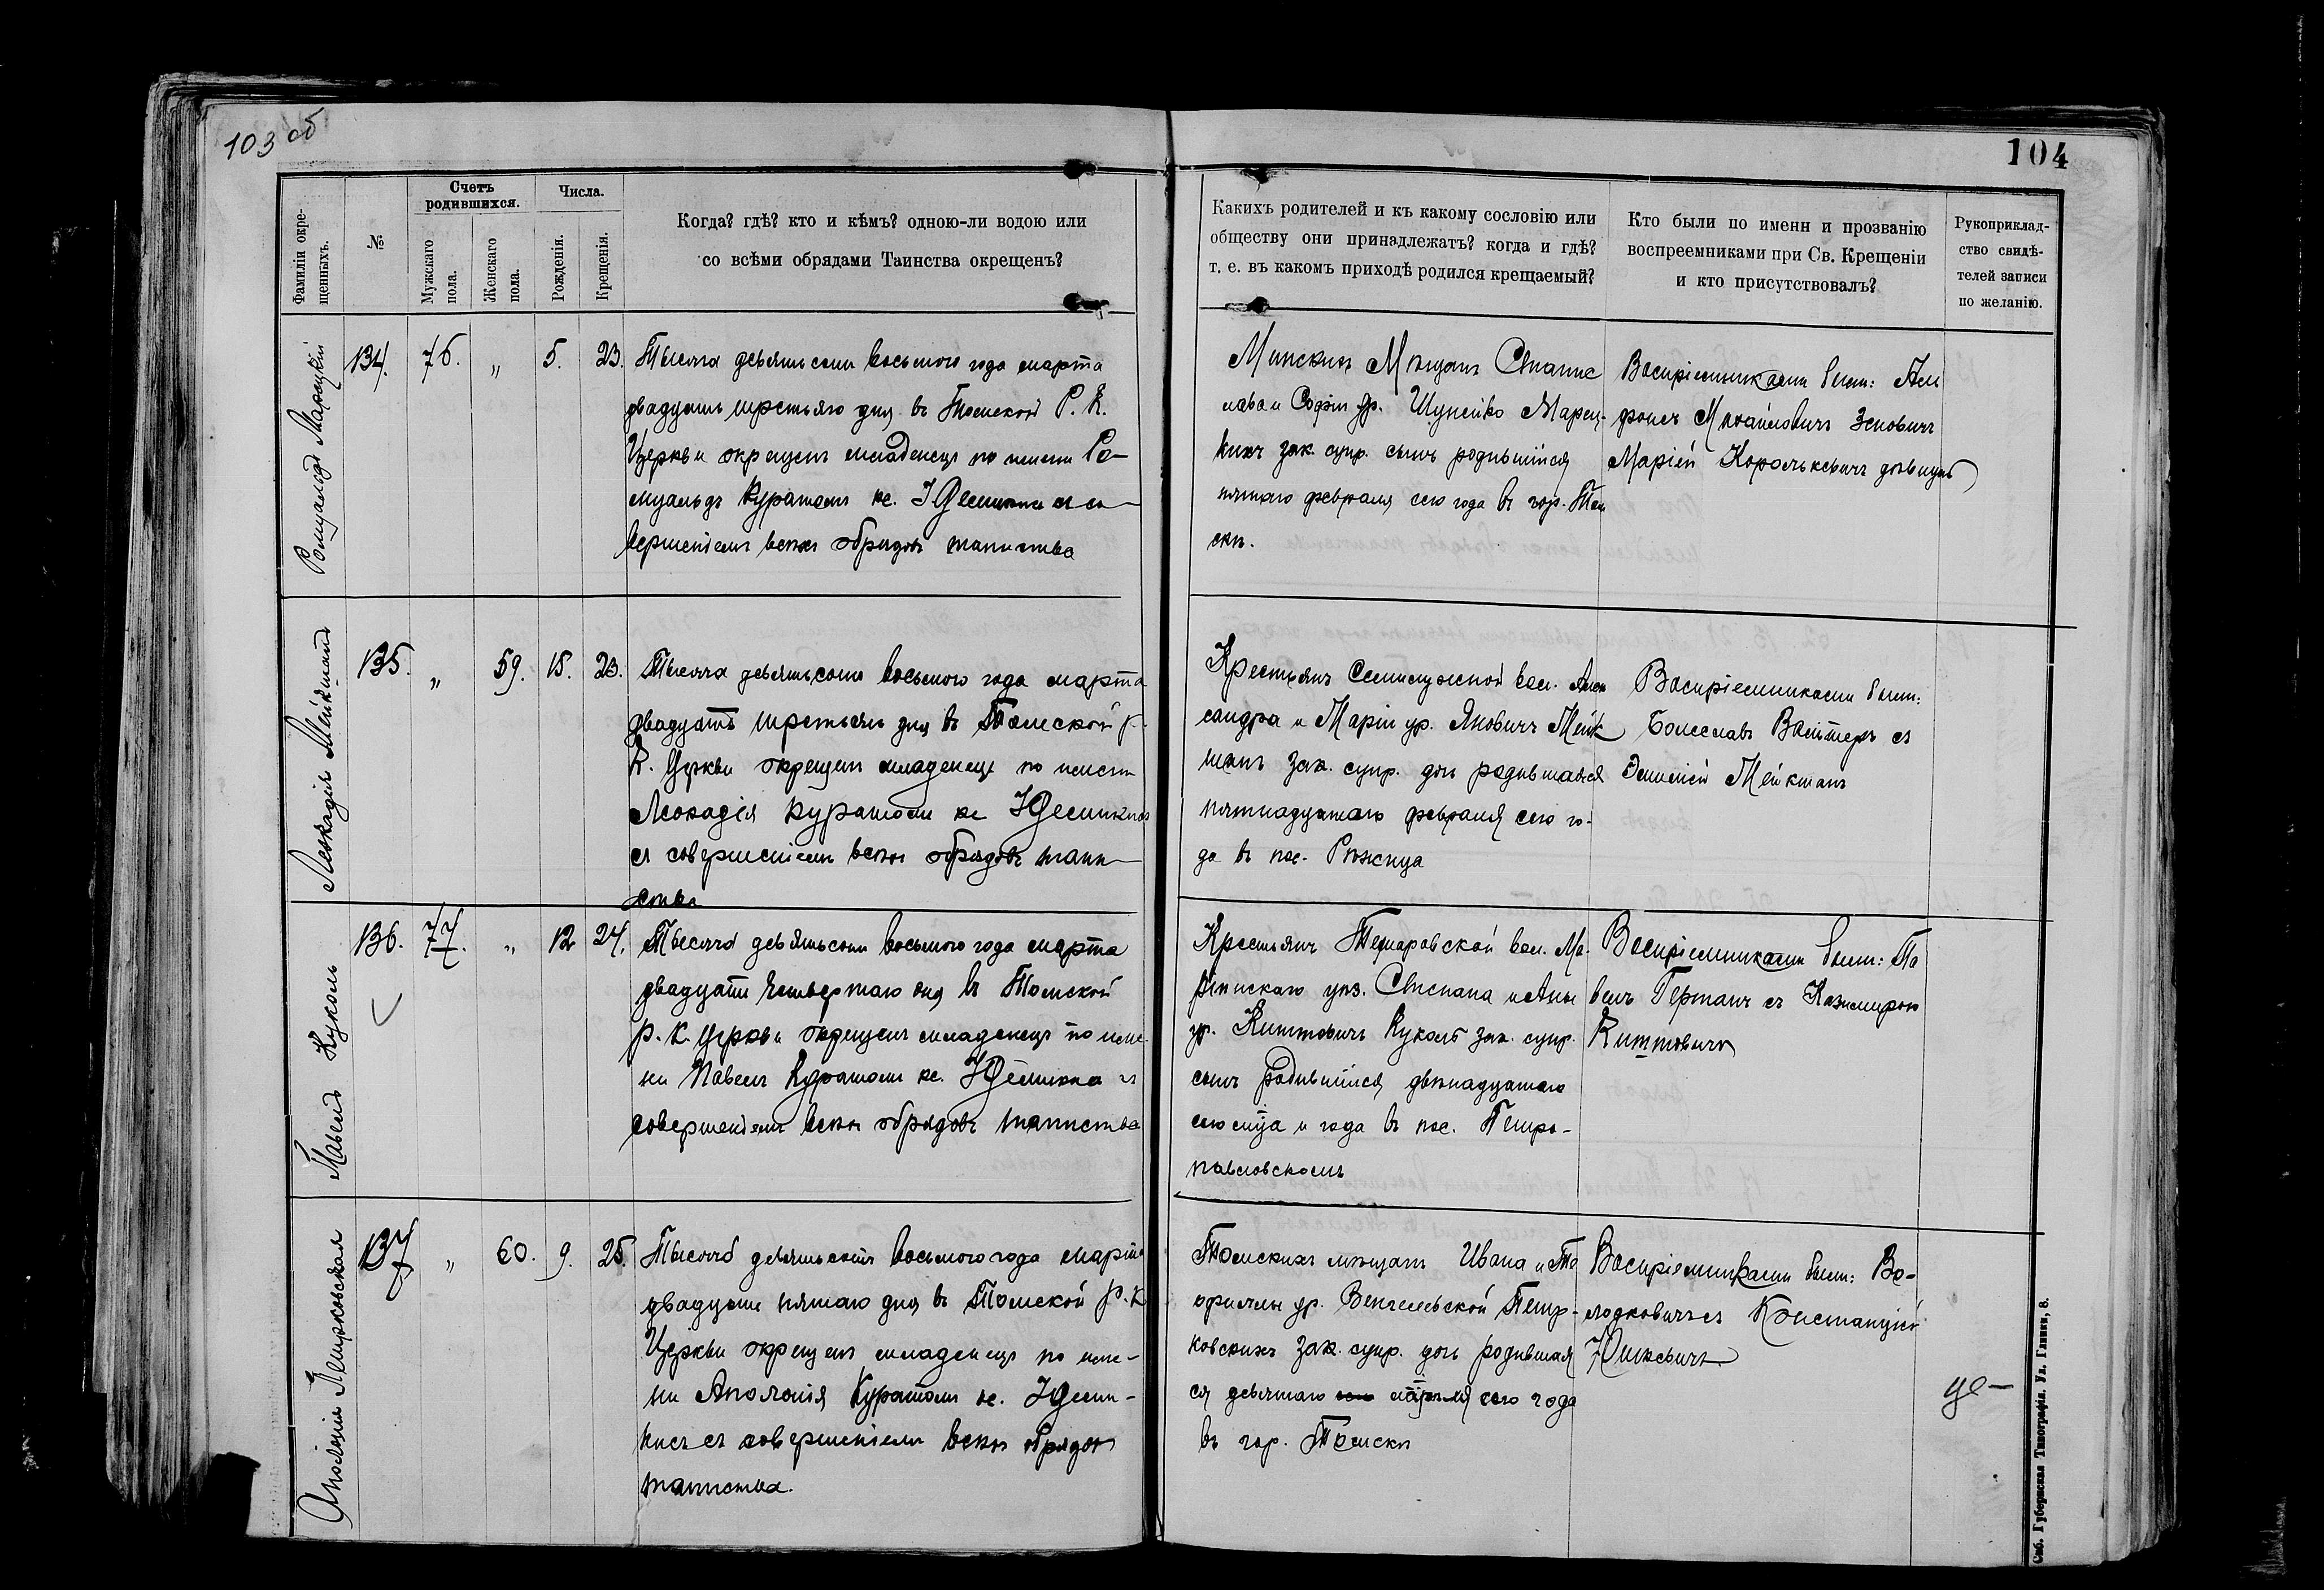 103 об
104
Фамиліи окре-
щенныхъ.
№
Счетъ
родившихся.
Мужскаго
пола.
Женскаго
пола.
Числа.
Рожденія.
Крещенія.
Когда? гдѣ? кто и кѣмъ? одною-ли водою или
со всѣми обрядами Таинства окрещенъ?
Какихъ родителей и къ какому сословію или
обществу они принадлежатъ? когда и гдѣ?
т. е. въ какомъ приходѣ родился крещаемый?
Кто были по имени и прозванію
воспреемниками при Св. Крещеніи
и кто присутствовалъ?
Рукоприклад-
ство свидѣ-
телей записи
по желанію.
Ромуальдъ
134. 76. „ 5. 23.
Тысяча девятьсотъ восьмого года марта
двадцать третьяго дня въ Томской Р. К.
Церкви окрещенъ младенецъ по имени Ро-
муальдъ Куратомъ кс. съ со-
вершеніемъ всѣхъ обрядовъ таинства
Минскихъ Мѣщанъ Станис
лава и Софіи ур.
кихъ зак. супр. сынъ родившійся
пятаго февраля сего года въ гор. Том
скѣ.
Воспріемниками были:
Михайловичъ Зеновичъ
Маріей Королькевичъ дѣвицей
Леокадія Мейкшанъ
135. „ 59. 15. 23.
Тысяча девятьсотъ восьмого года марта
двадцать третьяго дня въ Томской р.
К. Церкви окрещенъ младенецъ по имени
Леокадія Куратомъ кс
съ совершеніемъ всѣхъ обрядовъ таин-
ства
Крестьянъ Семилужной вол. Алек
сандра и Маріи ур. Яновичъ Мейк
шанъ зак. супр. дочь родившаяся
пятнадцатаго февраля сего го-
да въ пос. Рѣжица
Воспріемниками были:
Болеславъ съ
Эмиліей Мейкшанъ
Павелъ Куколь
136. 77. „ 12 24.
Тысяча девятьсотъ восьмого года марта
двадцать четвертаго дня въ Томской
р. к. церкви окрещенъ младенецъ по име-
ни Павелъ Куратомъ кс. съ
совершеніемъ всѣхъ обрядовъ таинства
Крестьянъ вол. Ма-
ріинскаго уѣз. Степана и Анны
ур. Киттовичъ Куколь зак. супр.
сынъ родившійся двѣнадцатаго
сего мѣца и года въ пос. Петро-
павловскомъ
Воспріемниками были: Па
велъ Германъ съ Казимирою
Киттовичъ
Аполонія Петровская
137 „ 60. 9. 25.
Тысяча девятьсотъ восьмого года марта
двадцать пятаго дня въ Томской р. к
Церкви окрещенъ младенецъ по име-
ни Аполонія Куратомъ кс.
съ совершеніемъ всѣхъ обрядовъ
таинства.
Томскихъ мѣщанъ Ивана и Те
офиліи ур.
ковскихъ зак. супр. дочь родившая
ся девятаго сего года
въ гор. Томскѣ
Воспріемниками были: Во-
лодковичъ съ Констанціей
Юшкевичъ
Спб. Губернская Типографія. Ул. Глинки, 8.